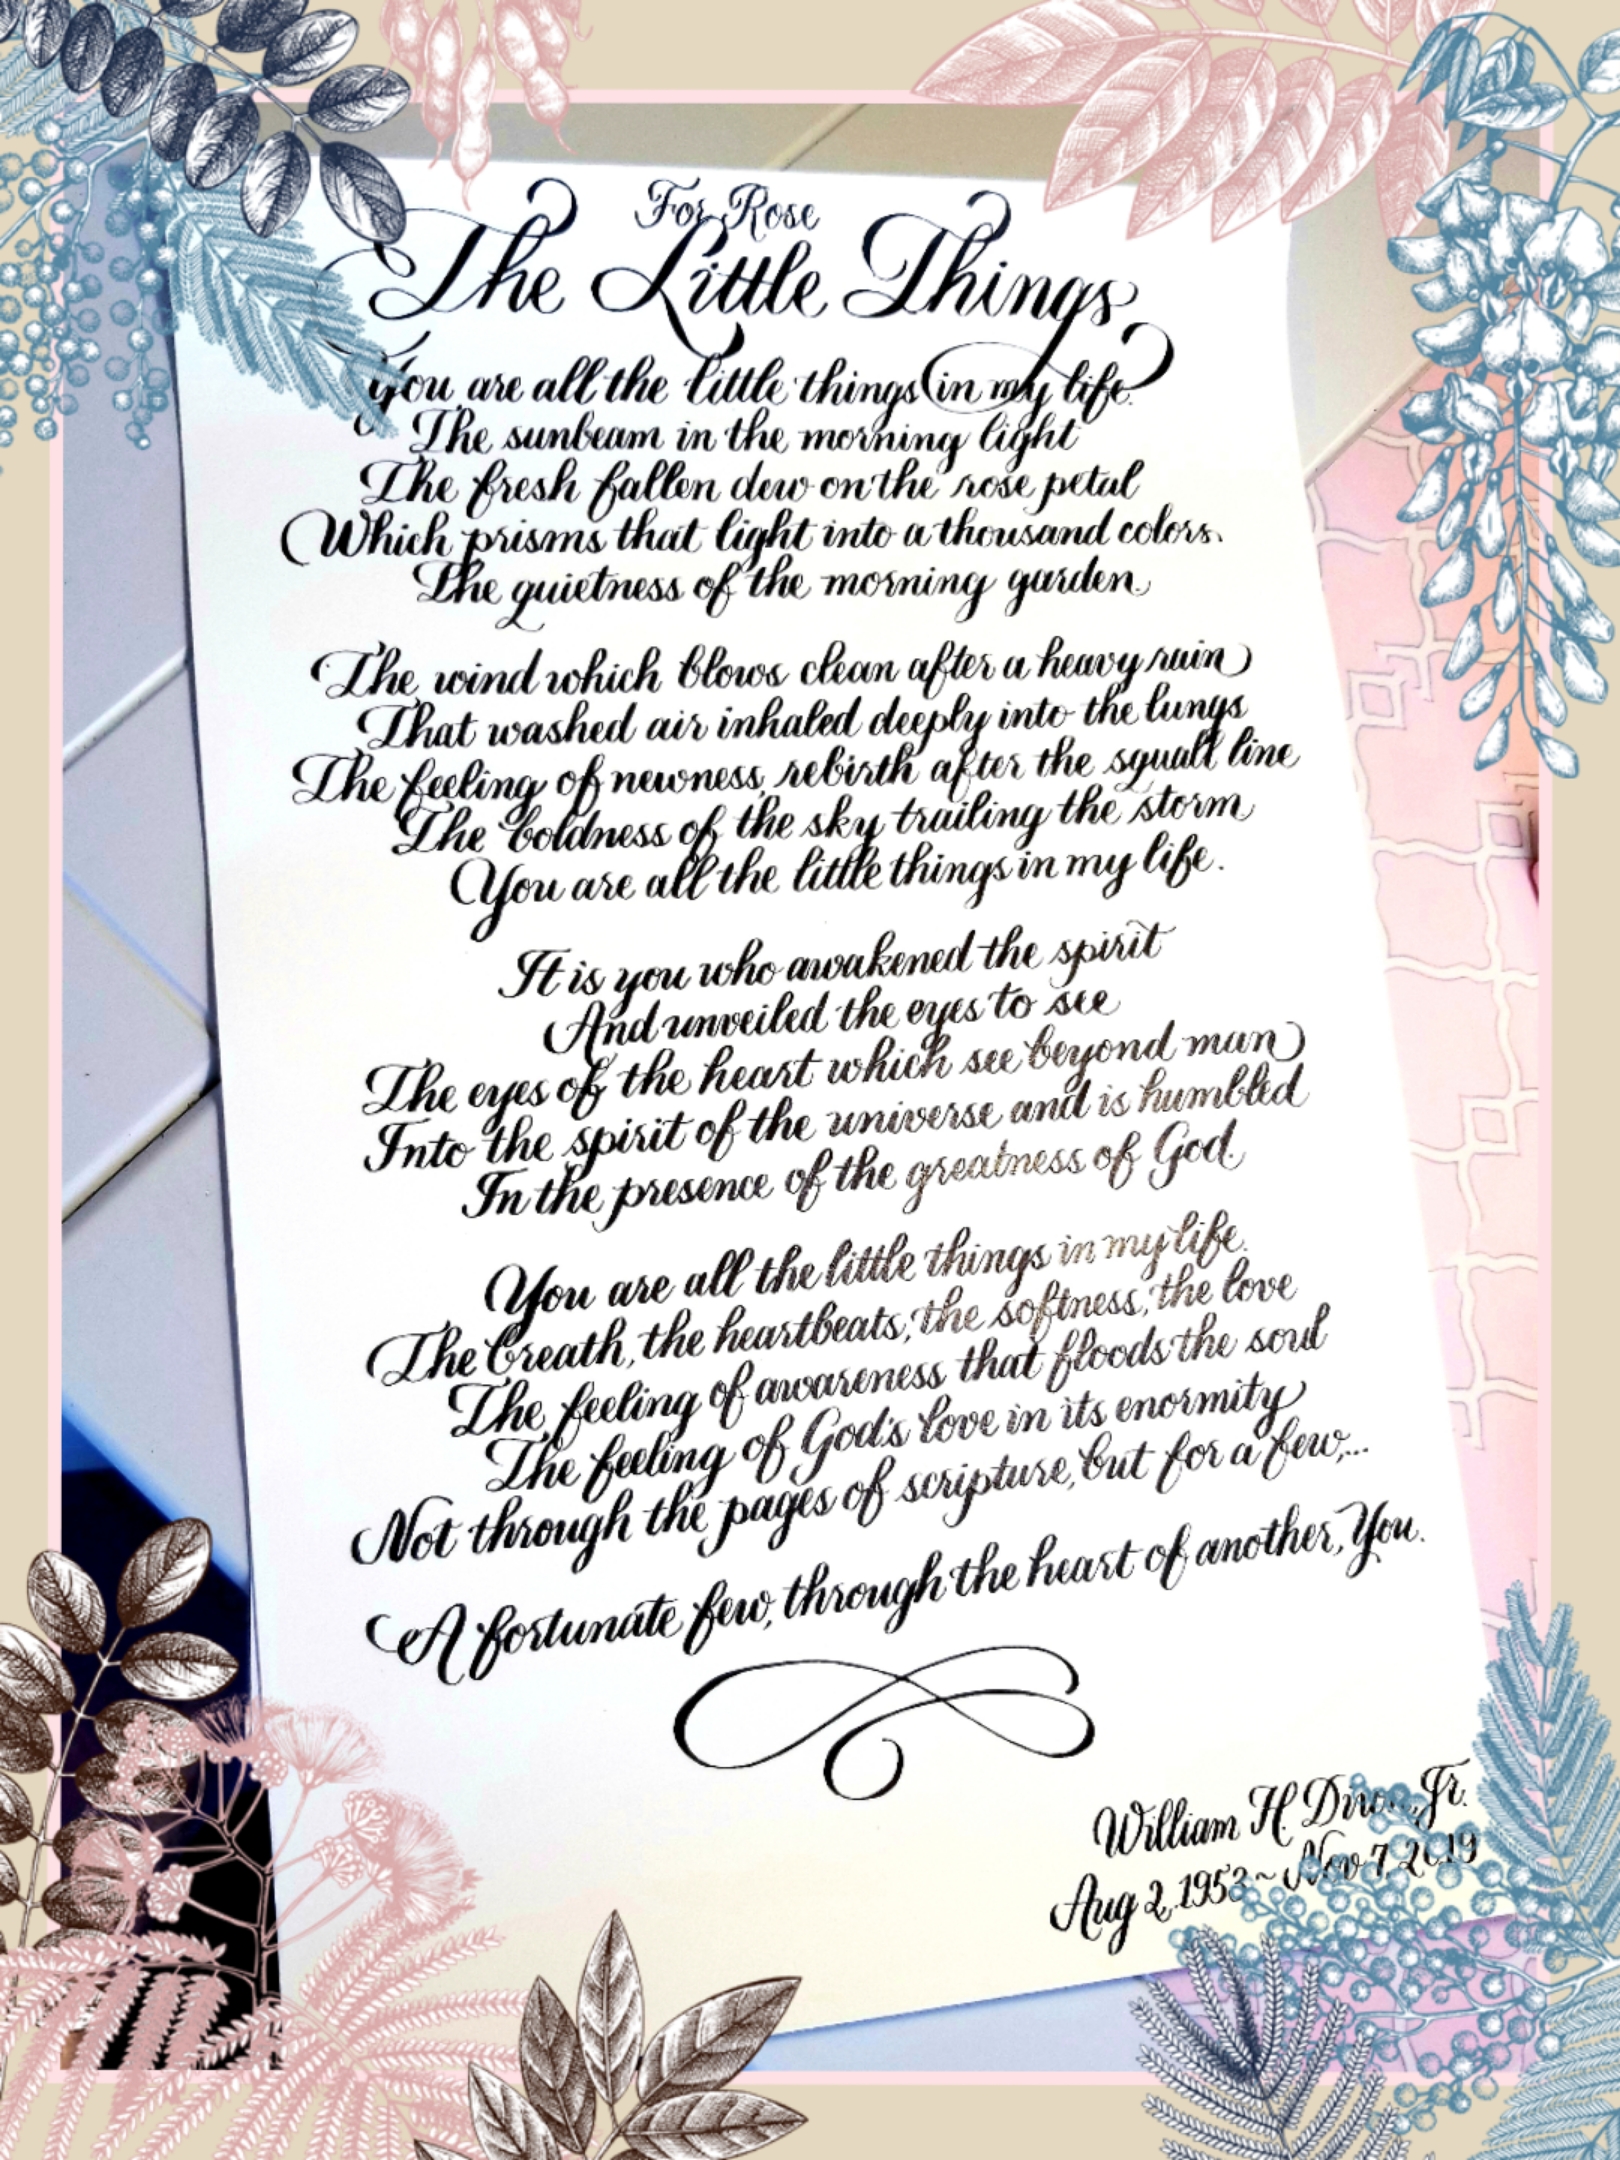 For Rose
The Little Things
You are all the little things in my life.
The sunbeam in the morning light
The fresh fallen dew on the rose petal
Which prisms that light into a thousand colors.
The quietness of the morning garden.
The wind which blows clean after a heavy rain
That washed air inhaled deeply into the lungs
The feeling of newness, rebirth after the squall line
The boldness of the sky trailing the storm
You are all the little things in my life.
It is you who awakened the spirit
And unveiled the eyes to see
The eyes of the heart which see beyond man
Into the spirit of the universe and is humbled
In the presence of the greatness of God.
You are all the little things in my life.
The breath, the heartbeats, the softness, the love
The feeling of awareness that floods the soul
The feeling of God's love in its enormity
Not through the pages of scripture, but for a few,...
A fortunate few, through the heart of another, You.
William H. Jr.
Aug 2, ~ Nov 7, 2019